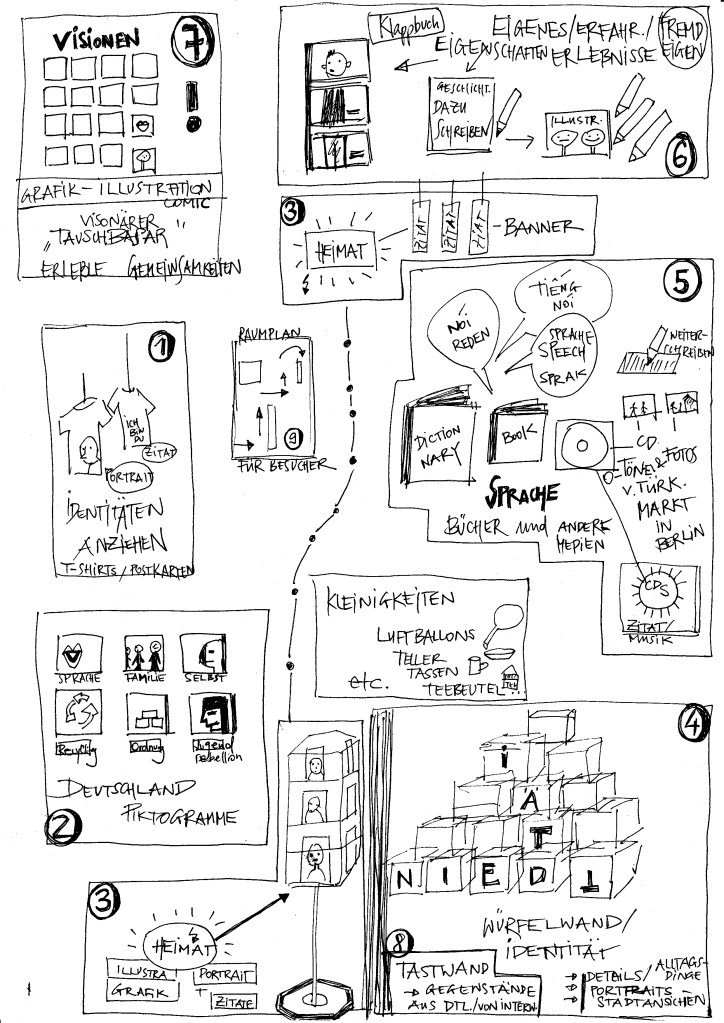 VISIONEN
7
GRAFIK – ILLUSTRATION
COMIC
VISIONÄRER
"TAUSCHBASAR"
ERLEBLE GEMEINSAMKEITEN
Klappbuch
EIGENES/ERFAHR./
EIGENSCHAFTEN ERLEBNISSE
FREMD
EIGEN
GESCHICHT.
DAZU
SCHREIBEN
ILLUSTR.
6
3
HEIMAT
ZITAT
ZITAT
ZITAT
- BANNER
5
NÓI
REDEN
TIẾNG
NÓI
SPRACHE
SPEECH
SPRAK
WEITER-
SCHREIBEN
DICTION
NARY
BOOK
CD.
TÖNE & FOTOS
V. TÜRK.
MARKT
IN
BERLIN
SPRACHE
BÜCHER und ANDERE
MEDIEN
CDS
ZITAT/
MUSIK
1
ICH
BIN
DU
ZITAT
PORTRAIT
IDENTITÄTEN
ANZIEHEN
T-SHIRTS/POSTKARTEN
RAUMPLAN
9
FÜR BESUCHER
KLEINIGKEITEN
LUFTBALLONS
TELLER
TASSEN
TEEBEUTEL...
etc.
TEE
SPRACHE
FAMILIE
SELBST
Recycling
Ordnung
Jugend
rebellion
DEUTSCHLAND
PIKTOGRAMME
2
3
HEIMAT
ILLUSTRA
GRAFIK
PORTRAIT
+
ZITATE
4
I
Ä
T
N I E D T
WÜRFELWAND/
IDENTITÄT
8
TASTWAND
→ GEGENSTÄNDE
AUS DTL./VON INTERN.
→ DETAILS/ALLTAGS-
DINGE
→ PORTRAITS
→ STADTANSICHEN